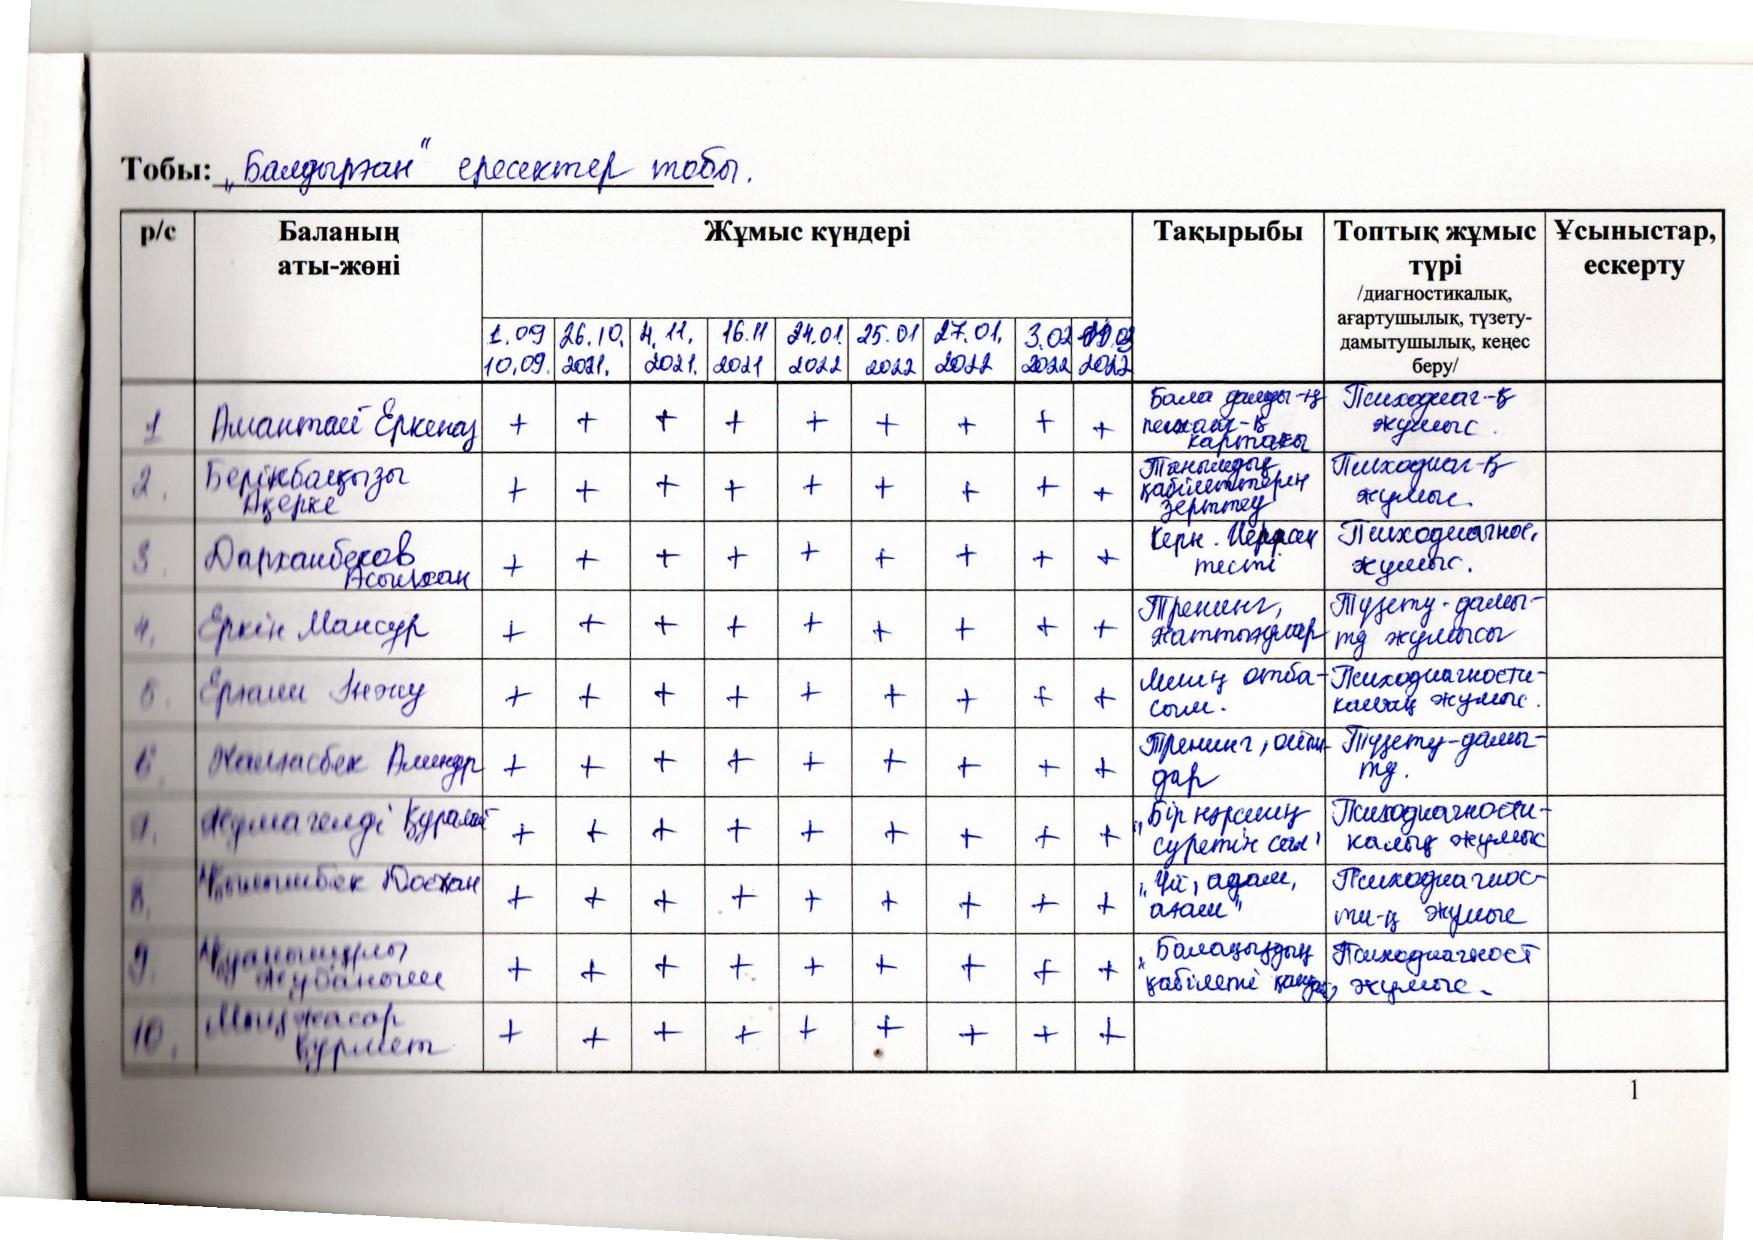 Тобы: „Балдырған" ересектер тобы.
р/с Баланың аты-жөні Жұмыс күндері Тақырыбы Топтық жұмыс түрі /диагностикалық, ағартушылық, түзету-дамытушылық, кеңес беру/ Ұсыныстар, ескерту
1.09 26.10. 4.11. 16.11 24.01. 25.01 27.01. 3.02
10.09. 2021. 2021. 2021 2022 2022 2022 2022 2022
1 Амантай Еркеназ + + + + + + + + + Бала дамуы-ң картасы Психодиаг-қ жұмыс.
2. Берікбақызы Ақерке + + + + + + + + + Танымдық қабілеттерін зерттеу Психодиаг-қ жұмыс.
3. Дарханбеков Асылхан + + + + + + + + + Керн. Йеррак тесті Психодиагнос. жұмыс.
4. Еркін Мансур + + + + + + + + + Тренинг, жаттығулар Түзету-дамы-ту жұмысы
5. Інжу + + + + + + + + + Менің отба-сым. Психодиагности-калық жұмыс.
6. + + + + + + + + + Тренинг, Түзету-дамы-ту.
7. Жұмагелді Құралай + + + + + + + + + „Бір нәрсенің суретін сал" Психодиагности-калық жұмыс
8. Досхан + + + + + + + + + „Үй, адам, ағаш" Психодиагнос-ти-қ жұмыс
9. + + + + + + + + + „Балаңыздың қабілеті қандай, Психодиагност жұмыс.
10. Мыңжасар Құрмет + + + + + + + + +
1